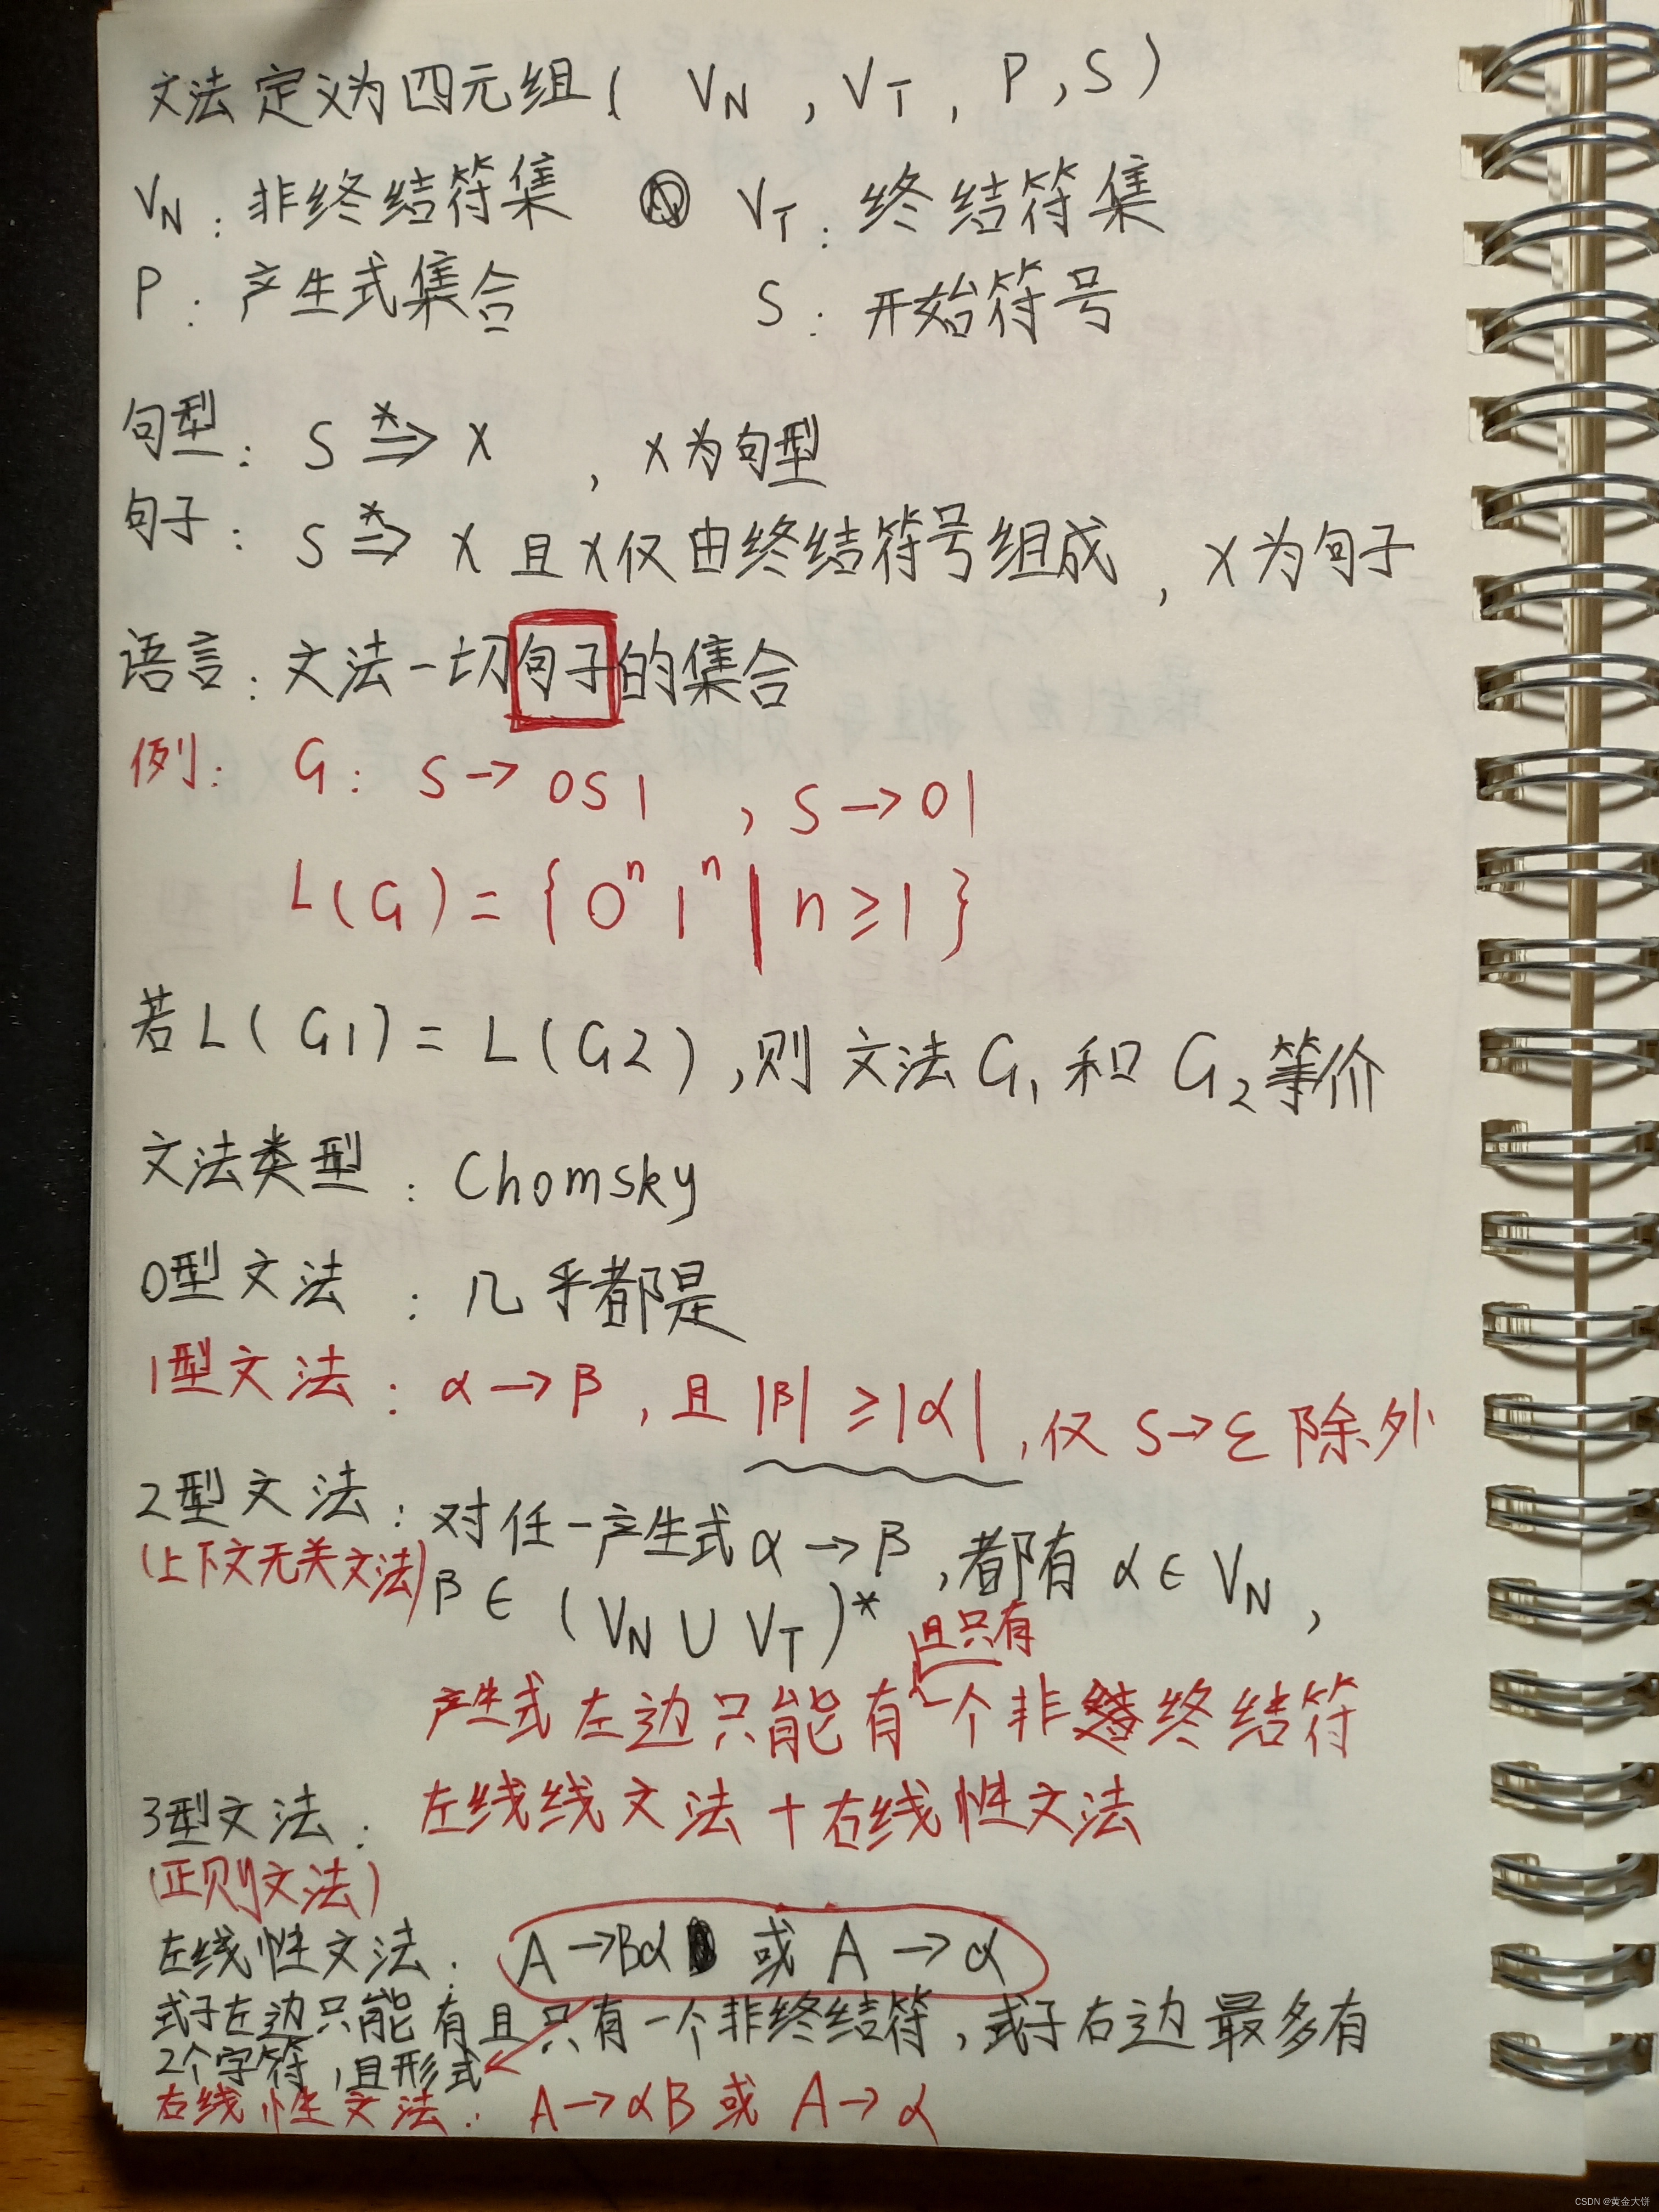 文法定义为四元组( VN , VT , P , S )
VN : 非终结符集 VT : 终结符集
P : 产生式集合 S : 开始符号
句型 : S *⇒ x , x为句型
句子 : S *⇒ x 且x仅由终结符号组成 , x为句子
语言 : 文法一切句子的集合
例: G: S → 0S1 , S → 01
L(G) = { 0ⁿ 1ⁿ | n ≥ 1 }
若L(G1) = L(G2) , 则文法G₁和G₂等价
文法类型 : Chomsky
0型文法 : 几乎都是
1型文法 : α → β , 且 |β| ≥ |α| , 仅 S → ε 除外
2型文法 : 对任一产生式 α → β , 都有 α ∈ VN ,
(上下文无关文法) β ∈ ( VN ∪ VT )*
且只有
产生式左边只能有一个非终结符
3型文法 : 左线线文法 + 右线性文法
(正则文法)
左线性文法 : A → Bα 或 A → α
式子左边只能有且只有一个非终结符 , 式子右边最多有
2个字符 , 且形式
右线性文法 : A → αB 或 A → α
CSDN @黄金大饼